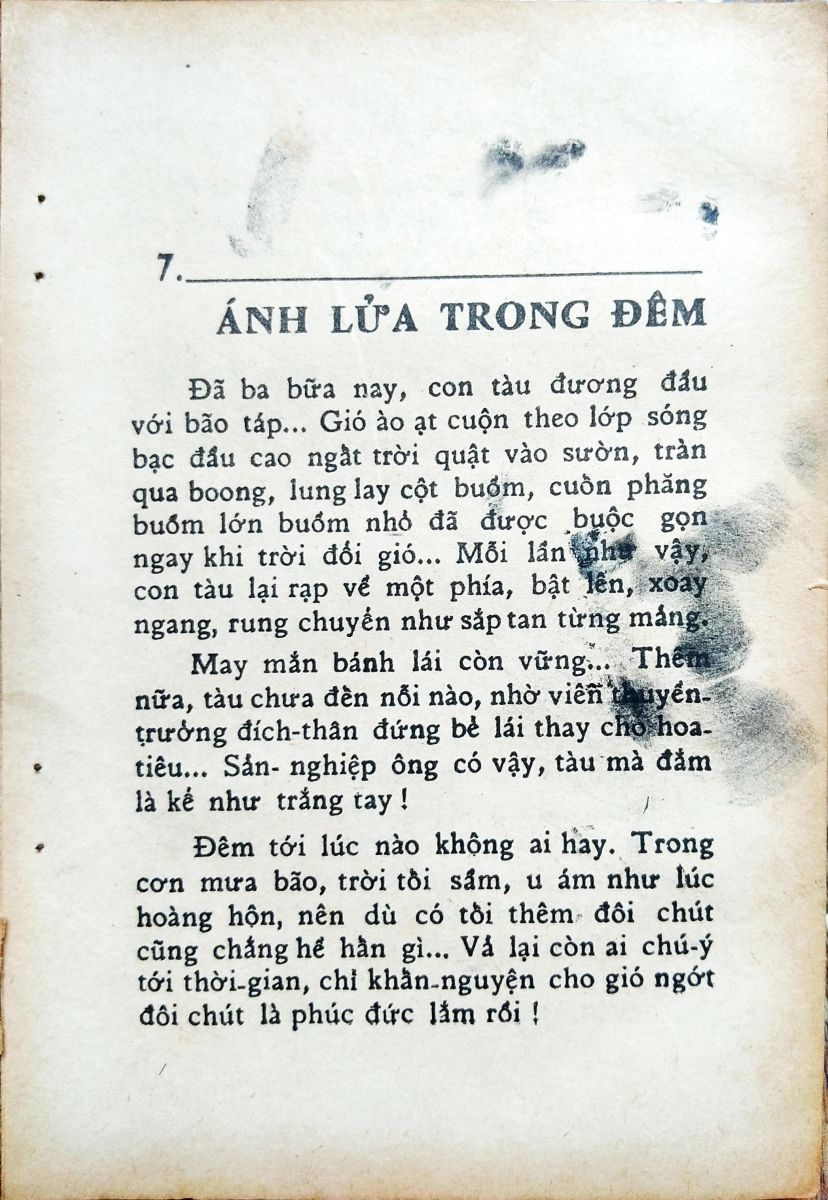 7.
ÁNH LỬA TRONG ĐÊM
Đã ba bữa nay, con tàu đương đầu
với bão táp... Gió ào ạt cuộn theo lớp sóng
bạc đầu cao ngất trời quật vào sườn, tràn
qua boong, lung lay cột buồm, cuốn phăng
buồm lớn buồm nhỏ đã được buộc gọn
ngay khi trời đổi gió... Mỗi lần như vậy,
con tàu lại rạp về một phía, bật lên, xoay
ngang, rung chuyển như sắp tan từng mảng.
May mắn bánh lái còn vững... Thêm
nữa, tàu chưa đến nỗi nào, nhờ viên thuyền-
trưởng đích-thân đứng bẻ lái thay cho hoa-
tiêu... Sản- nghiệp ông có vậy, tàu mà đắm
là kể như trắng tay !
Đêm tới lúc nào không ai hay. Trong
cơn mưa bão, trời tối sầm, u ám như lúc
hoàng hôn, nên dù có tối thêm đôi chút
cũng chẳng hề hấn gì... Vả lại còn ai chú-ý
tới thời-gian, chỉ khấn-nguyện cho gió ngớt
đôi chút là phúc đức lắm rồi !